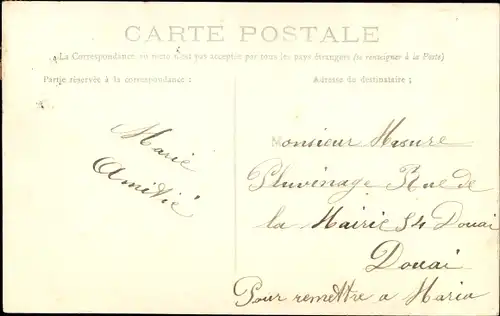 CARTE POSTALE
La Correspondance au recto n'est pas acceptée par tous les pays étrangers (se renseigner à la Poste)
Partie réservée à la correspondance :
Adresse du destinataire :
Marie
Amitié
Monsieur Masure
Pluvinage Rue de
la Mairie 84 Douai
Douai
Pour remettre a Maria